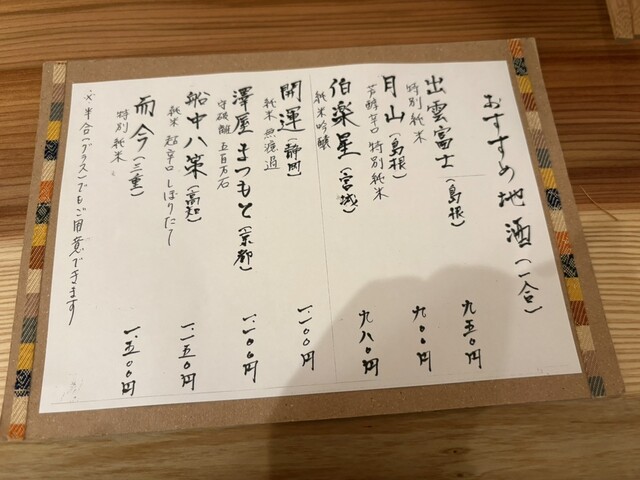 おすすめ地酒(一合)
出雲富士(島根)
特別純米
九五〇円
月山(島根)
芳醇辛口 特別純米
九〇〇円
伯楽星(宮城)
純米吟醸
九八〇円
開運(静岡)
純米 無濾過
一.一〇〇円
澤屋まつもと(京都)
守破離 五百万石
一.一〇〇円
船中八策(高知)
純米 超辛口 しぼりたて
一.一五〇円
而今(三重)
特別純米
一.五〇〇円
※半合(グラス)でもご用意できます